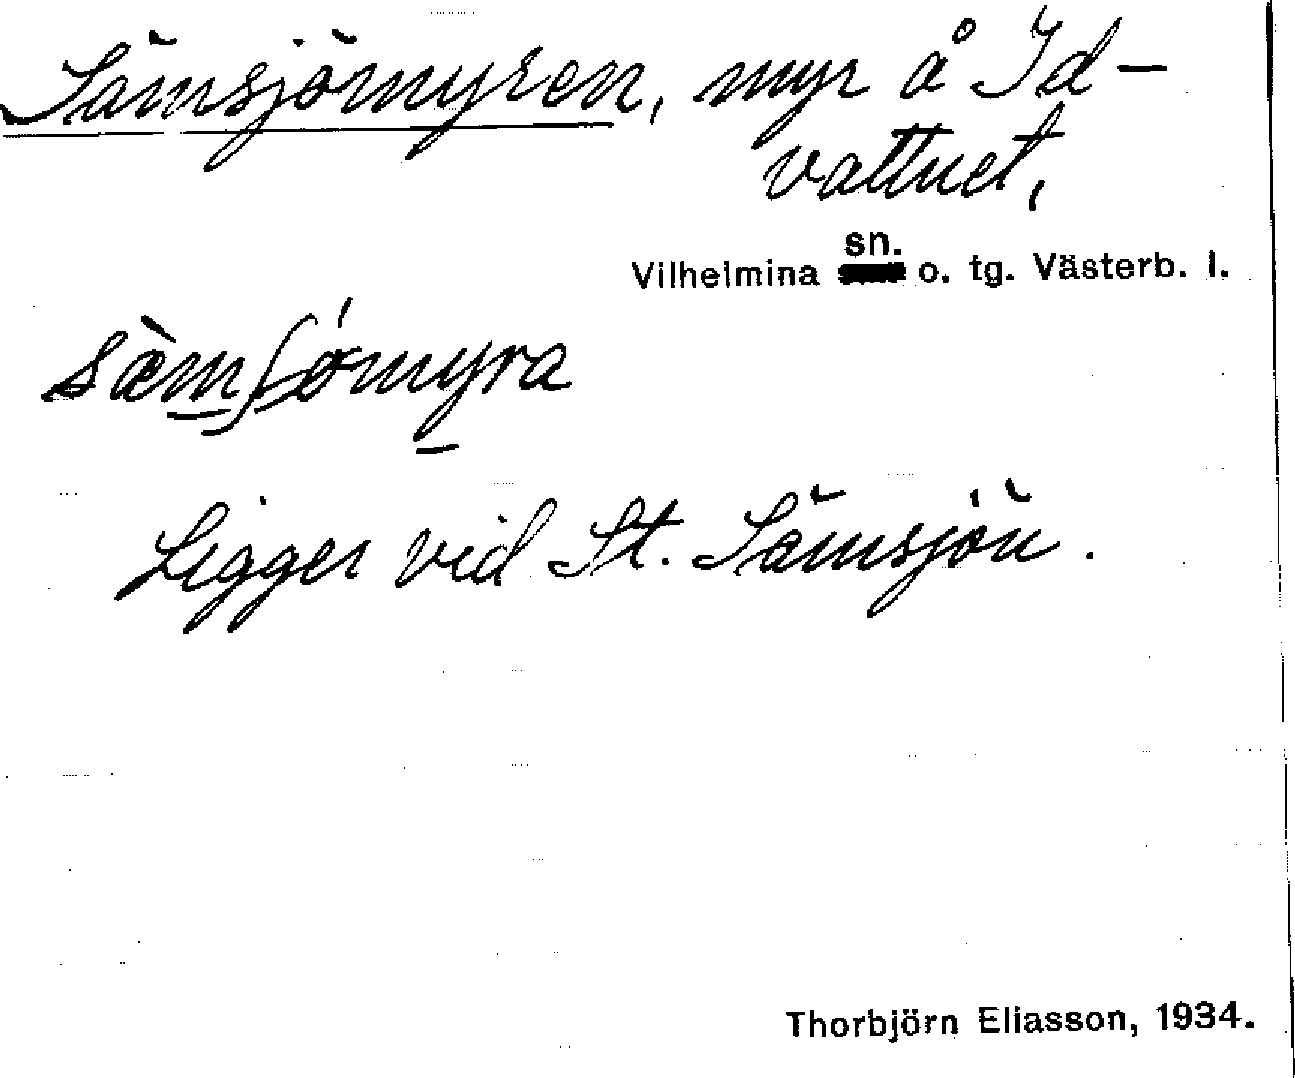 Sämsjömyren, myr å Id-
vattnet,
sn.
Vilhelmina o. tg. Västerb. l.
sæ̀mʃǿmyra
Ligger vid St. Sämsjön.
Thorbjörn Eliasson, 1934.